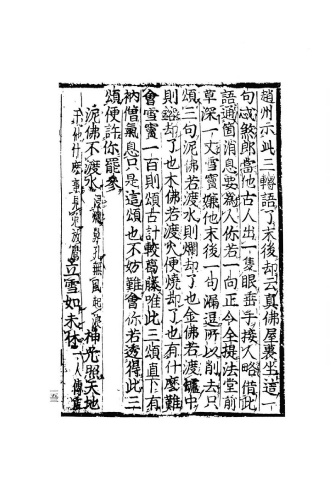 趙州示此三轉語了末後却云真佛屋裏坐這一
句忒煞郎當他古人出一隻眼垂手接人略借此
語通箇消息要爲人你若一向正令全提法堂前
草深一丈雪竇嫌他末後一句漏逗所以削去只
頌三句泥佛若渡水則爛却了也金佛若渡鑪中
則鎔却了也木佛若渡火便燒却了也有什麽難
會雪竇一百則頌古計較葛藤唯此三頌直下有
衲僧氣息只是這頌也不妨難會你若透得此三
頌便許你罷參
泥佛不渡水
無風起浪
神光照天地
立雪如未休